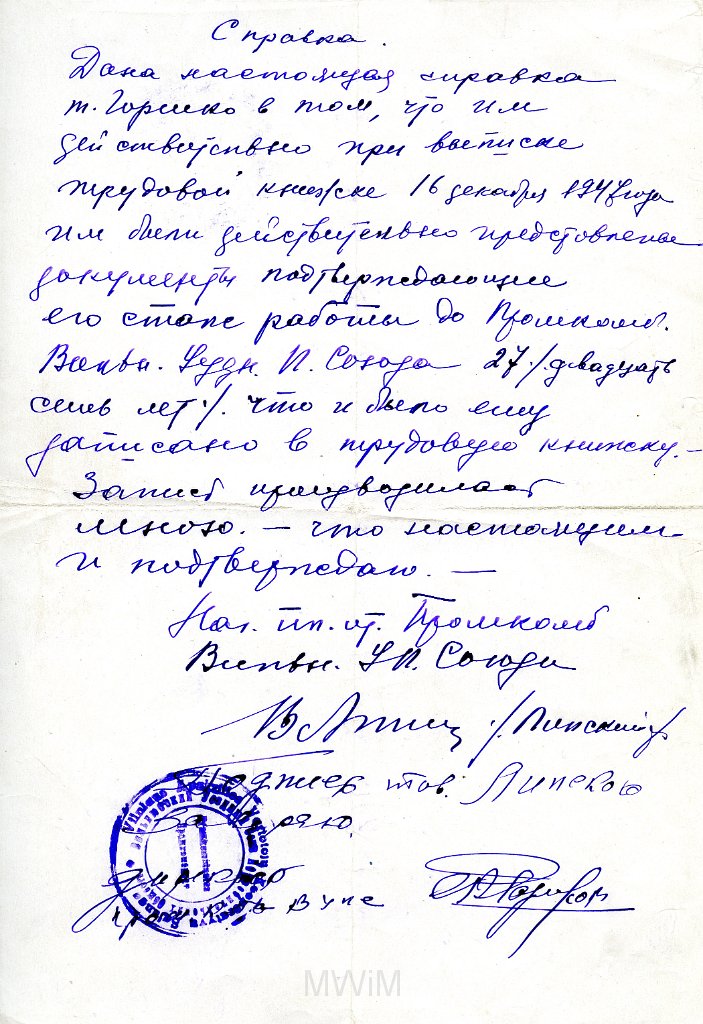 Справка.
Дана настоящая справка
т. Горшко в том, что им
действительно при выписке
трудовой книжке 16 декабря 1947 года
им были действительно представлены
документы подтверждающие
его стаж работы до Промкомб.
Вильн. Уездн. П. Союза 27 /двадцать
семь лет/. что и было ему
записано в трудовую книжку. –
Запись производилась
мною. – что настоящим
и подтверждаю. —
Нач. пл. от. Промкомб
Вильн. У П. Союза
/Липский/
тов. Липского
заверяю
Директор
MWiM